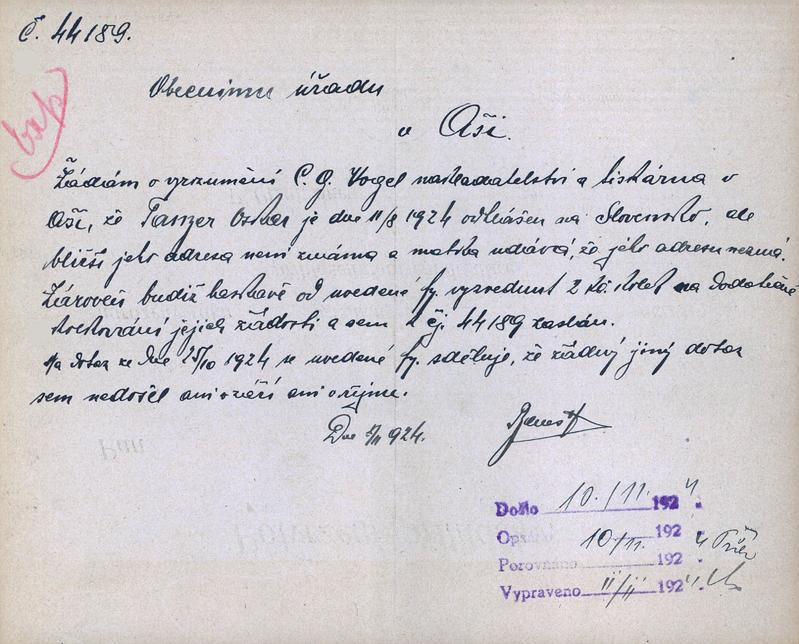 Č. 44189.
Obecnímu úřadu
v Aši.
Žádám o vyrozumění C. G. Vogel nakladatelství a tiskárna v
Aši, že Tanzer Oskar je dne 11/8 1924 odhlášen na Slovensko, ale
bližší jeho adresa není známa a matka udává, že jeho adresu nezná.
Zároveň budiž laskavě od uvedené fy. vyzvednut 2 Kč. kolek na dodatečné
kolkování jejich žádosti a sem k čj. 44189 zaslán.
Na dotaz ze dne 25/10 1924 se uvedené fy. sděluje, že žádný jiný dotaz
sem nedošel ani v září ani v říjnu.
Dne 1924.
Došlo 10./11. 1924.
Opsáno 10/11. 1924
Porovnáno 192 .
Vypraveno 11/11 1924.